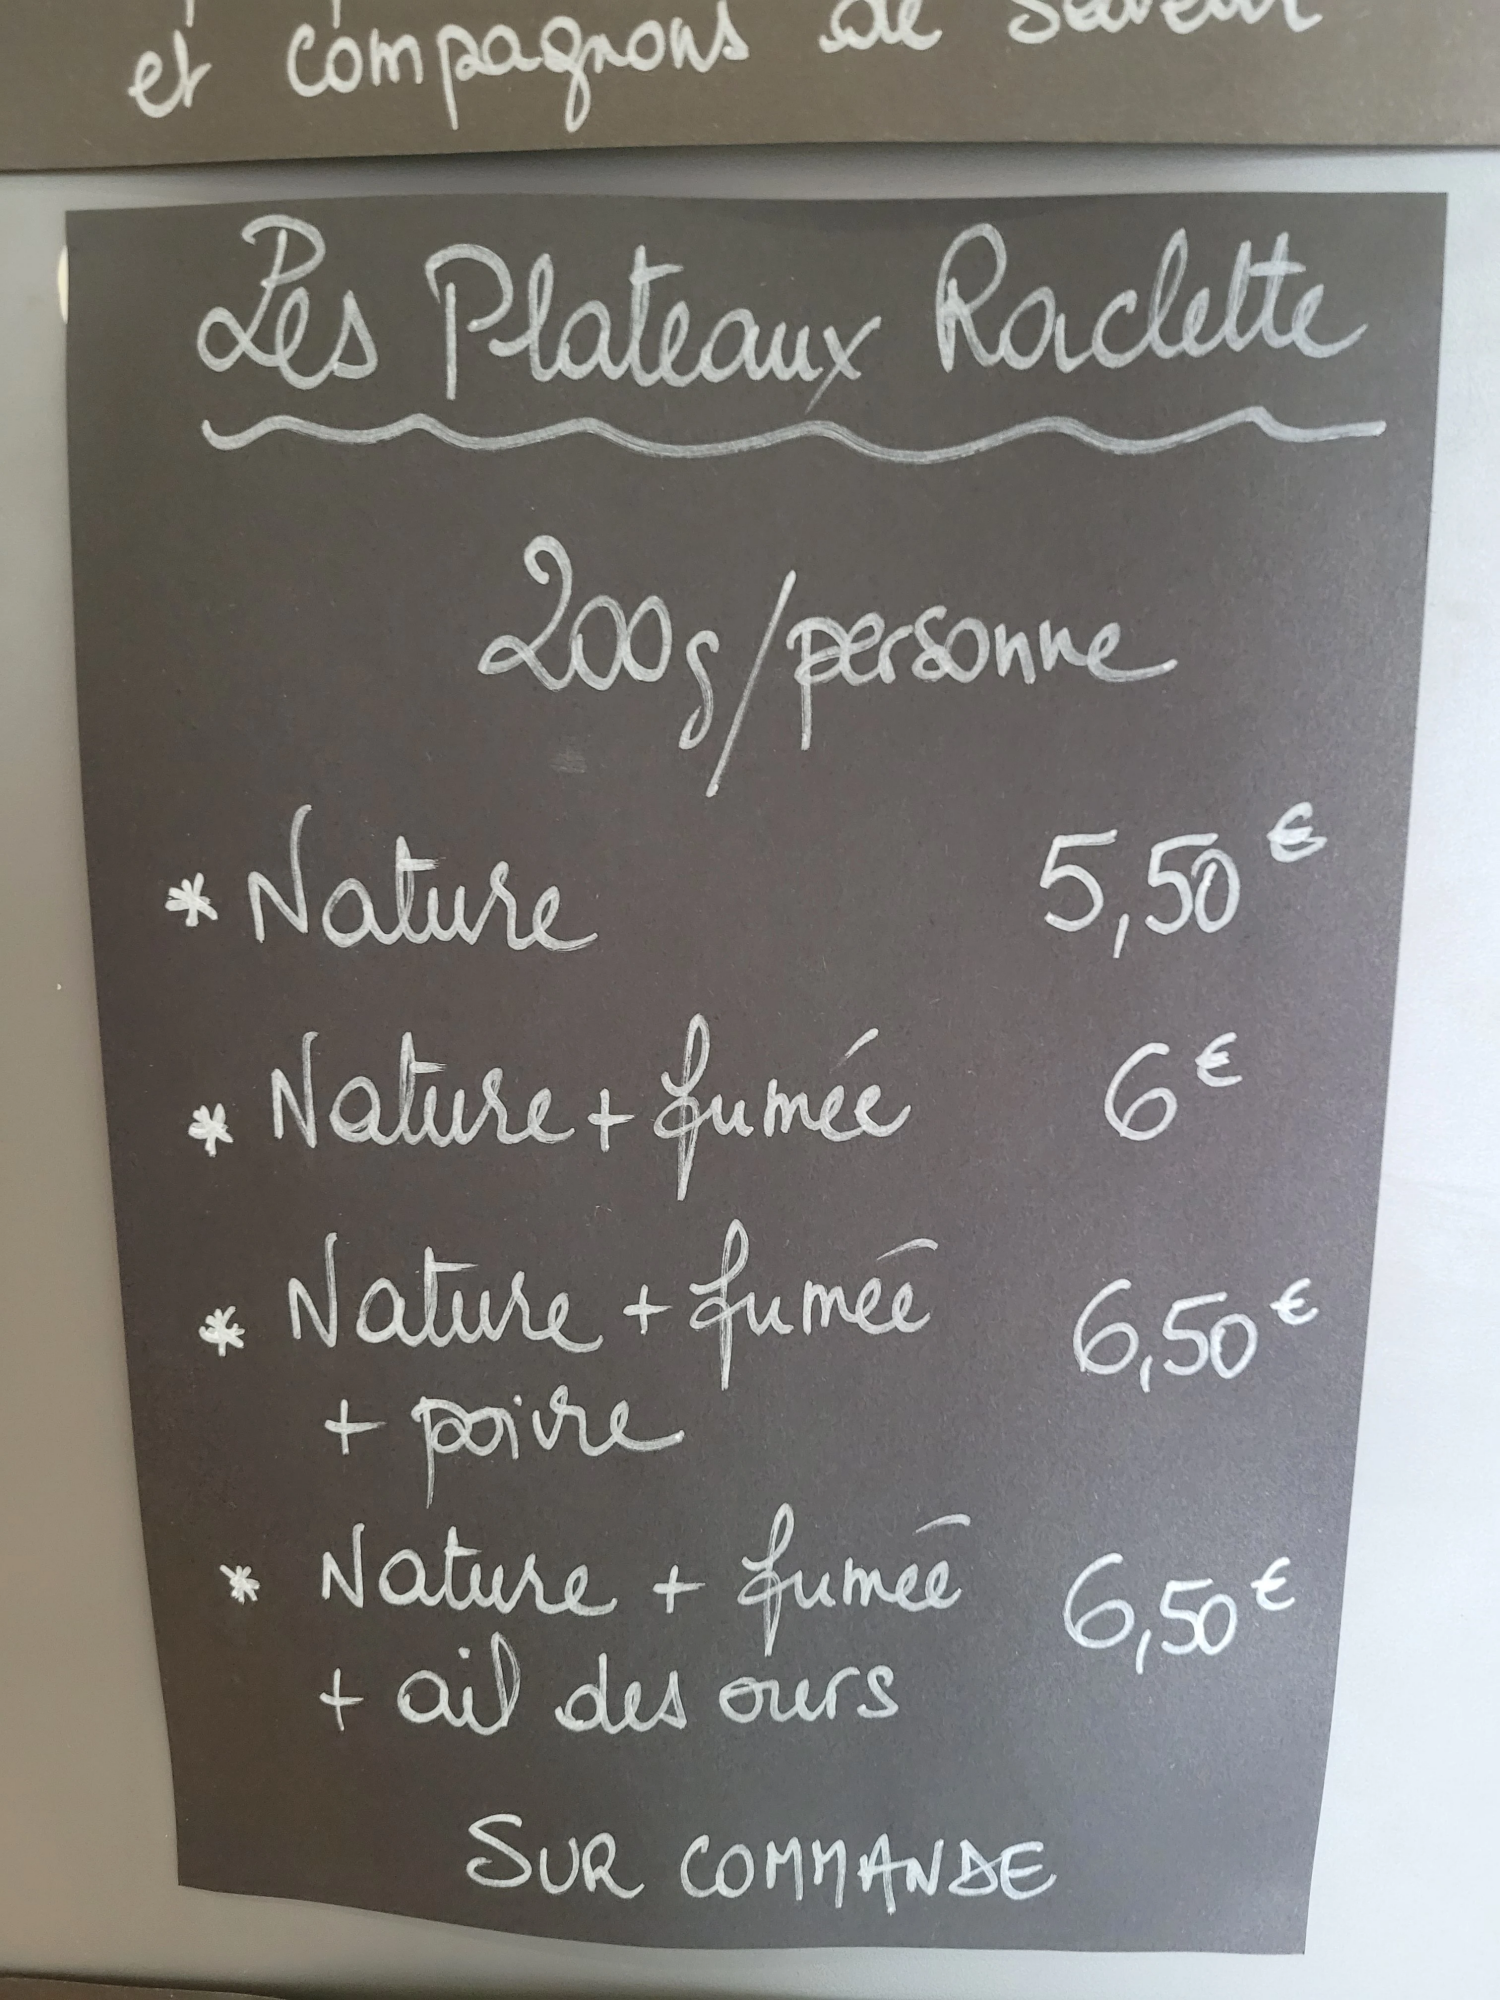 et compagnons de saveur
Les Plateaux Raclette
200g/personne
* Nature 5,50€
* Nature + fumée 6€
* Nature + fumée 6,50€
+ poivre
* Nature + fumée 6,50€
+ ail des ours
SUR COMMANDE